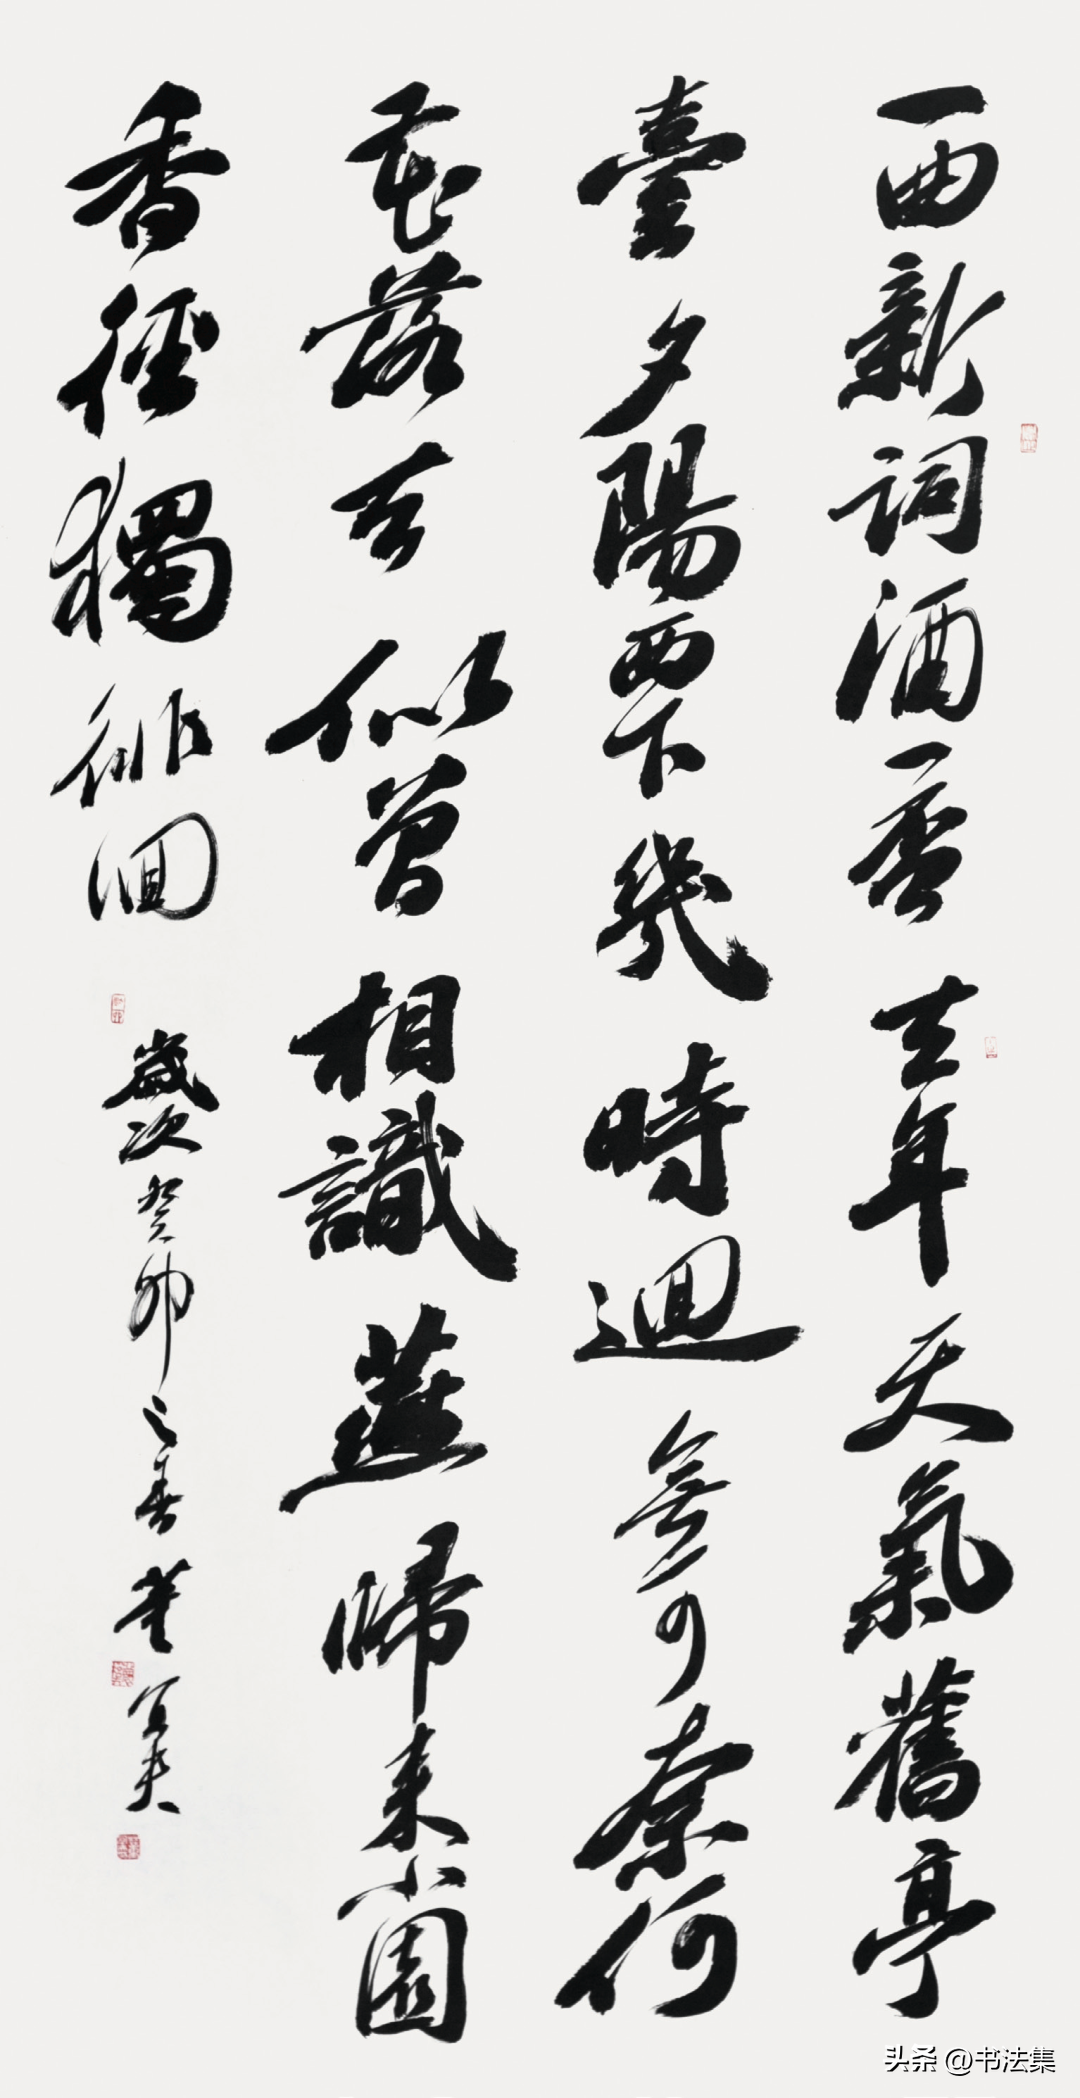 一曲新詞酒一壺去年天氣舊亭
臺夕陽西下幾時迴無可奈何
花落去似曾相識燕歸來小園
香徑獨徘徊
歲次癸卯之春董
头条 @书法集